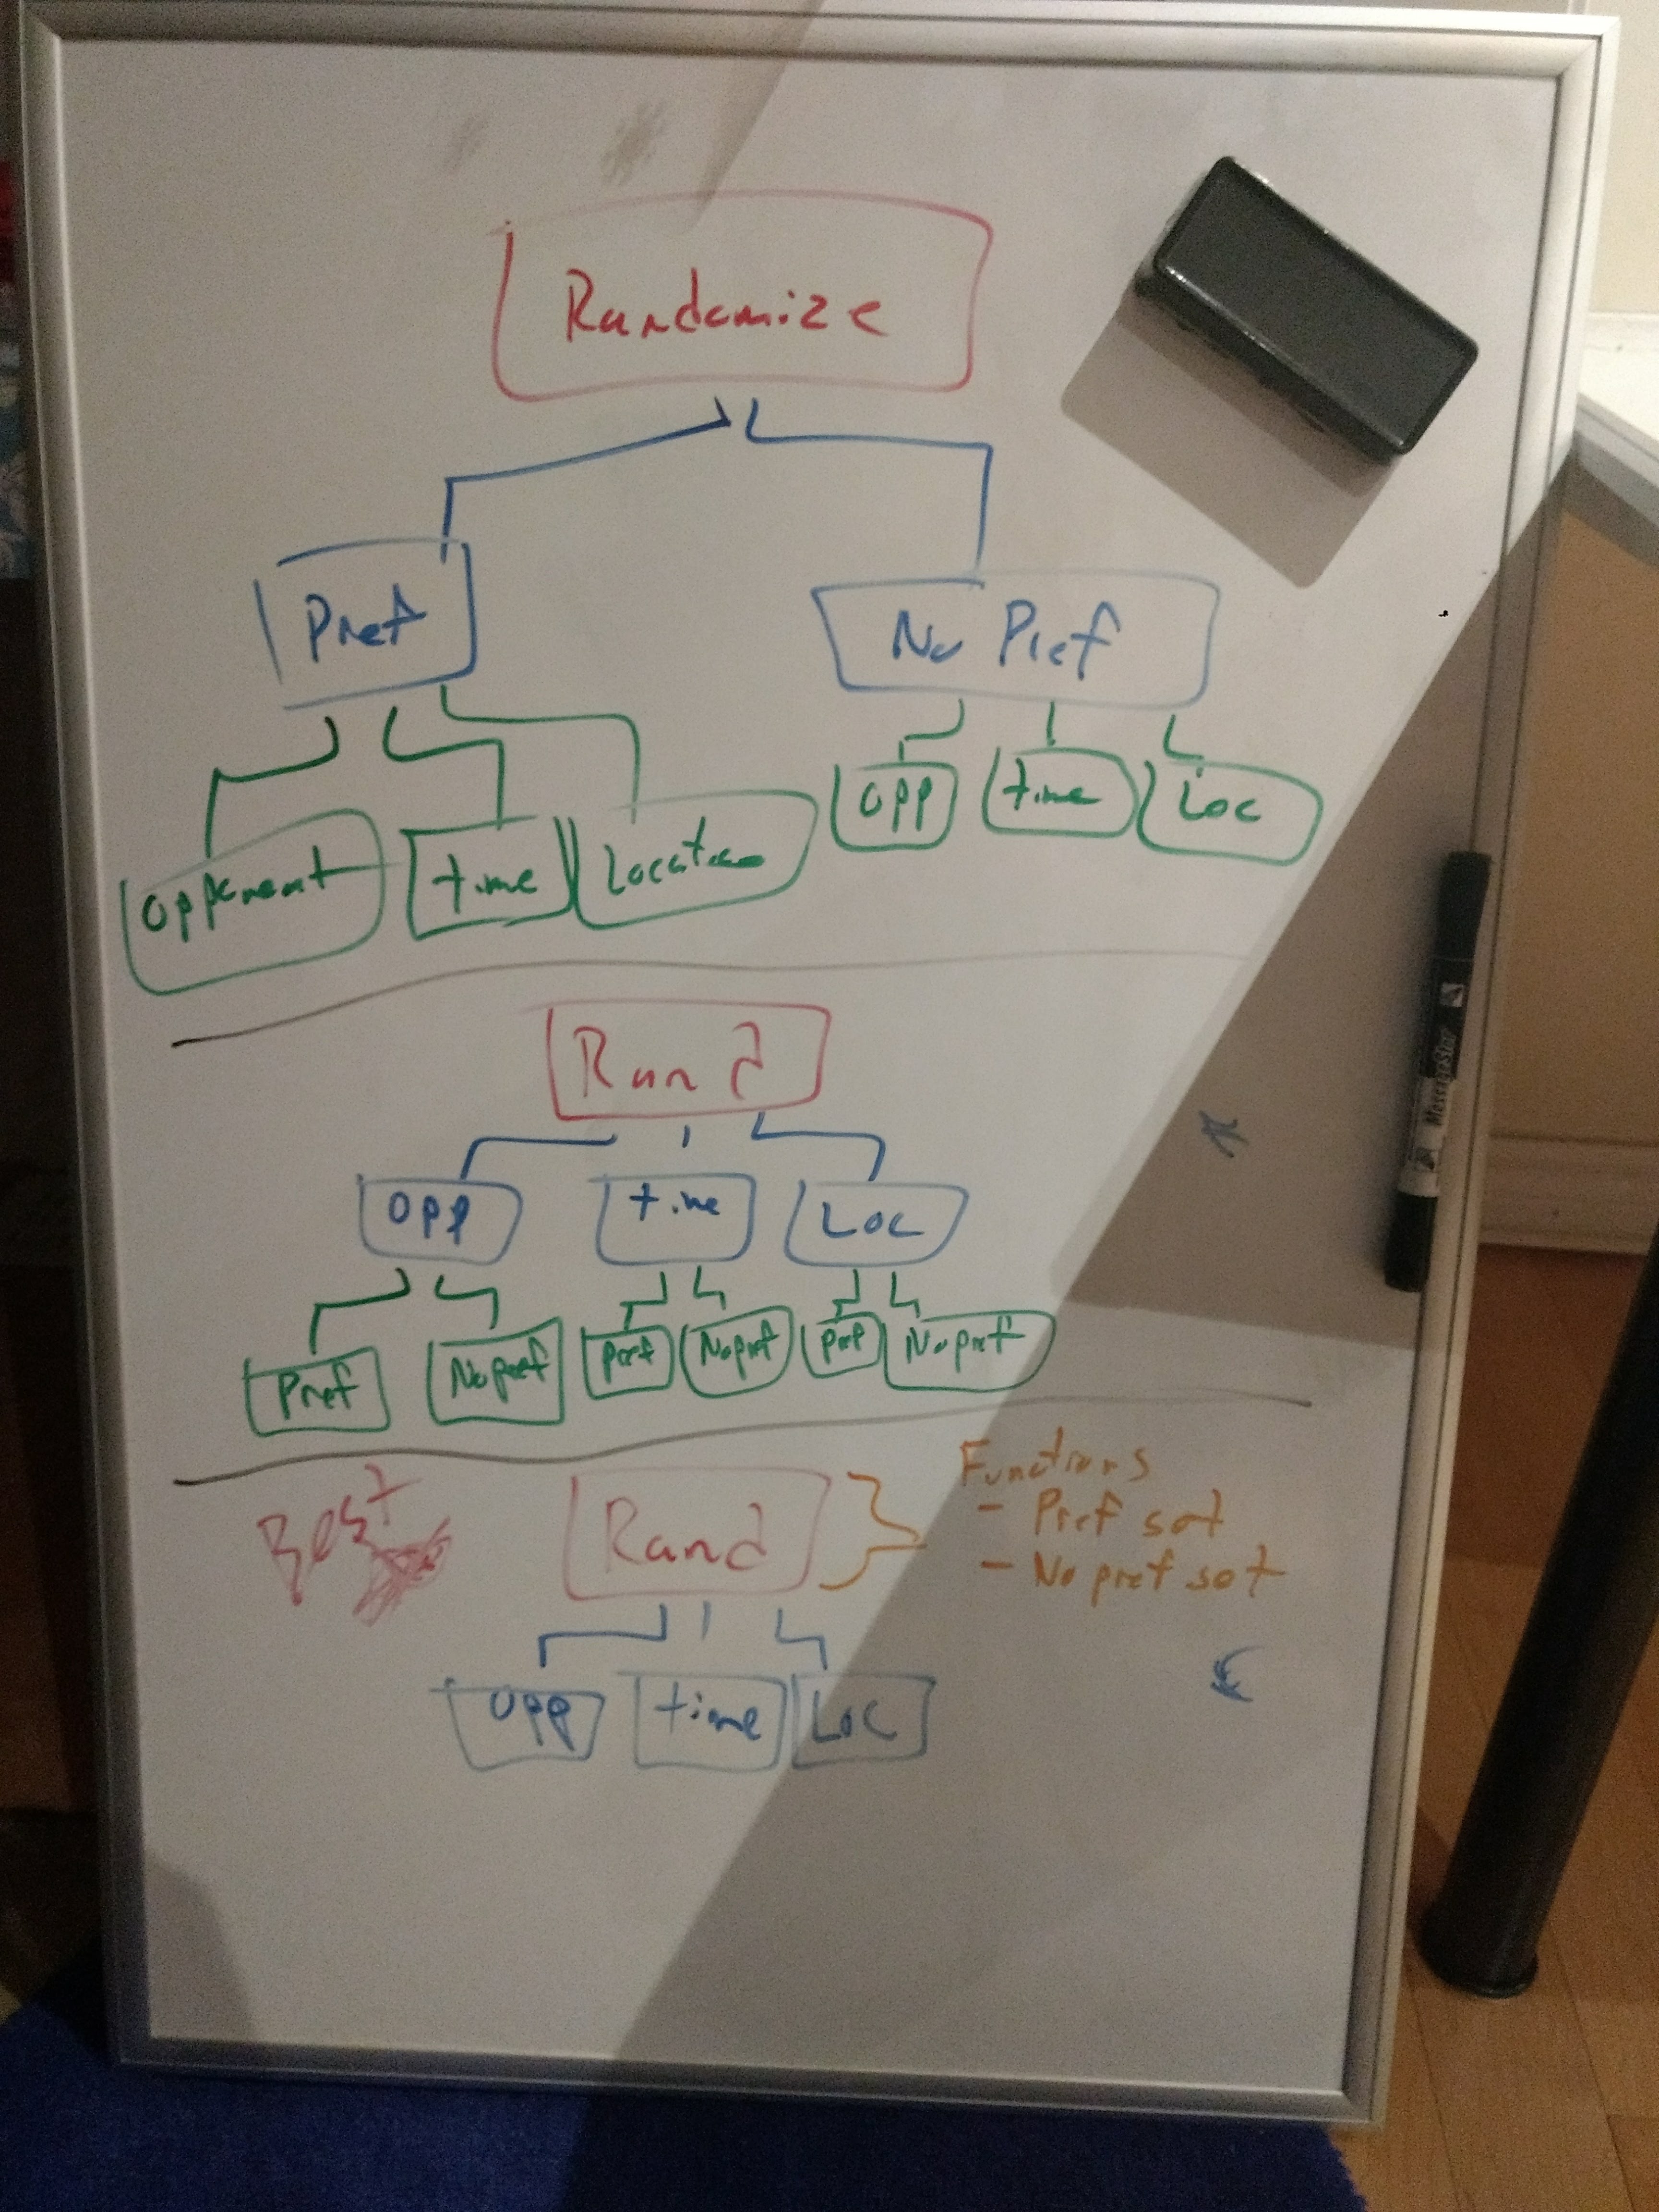 Randomize
Pref No Pref
Opp time Loc
Opponent time Location
Rand
Opp time Loc
Pref No pref Pref No pref Pref No pref
Best
Rand
Functions
- Pref set
- No pref set
Opp time Loc
MessageStar